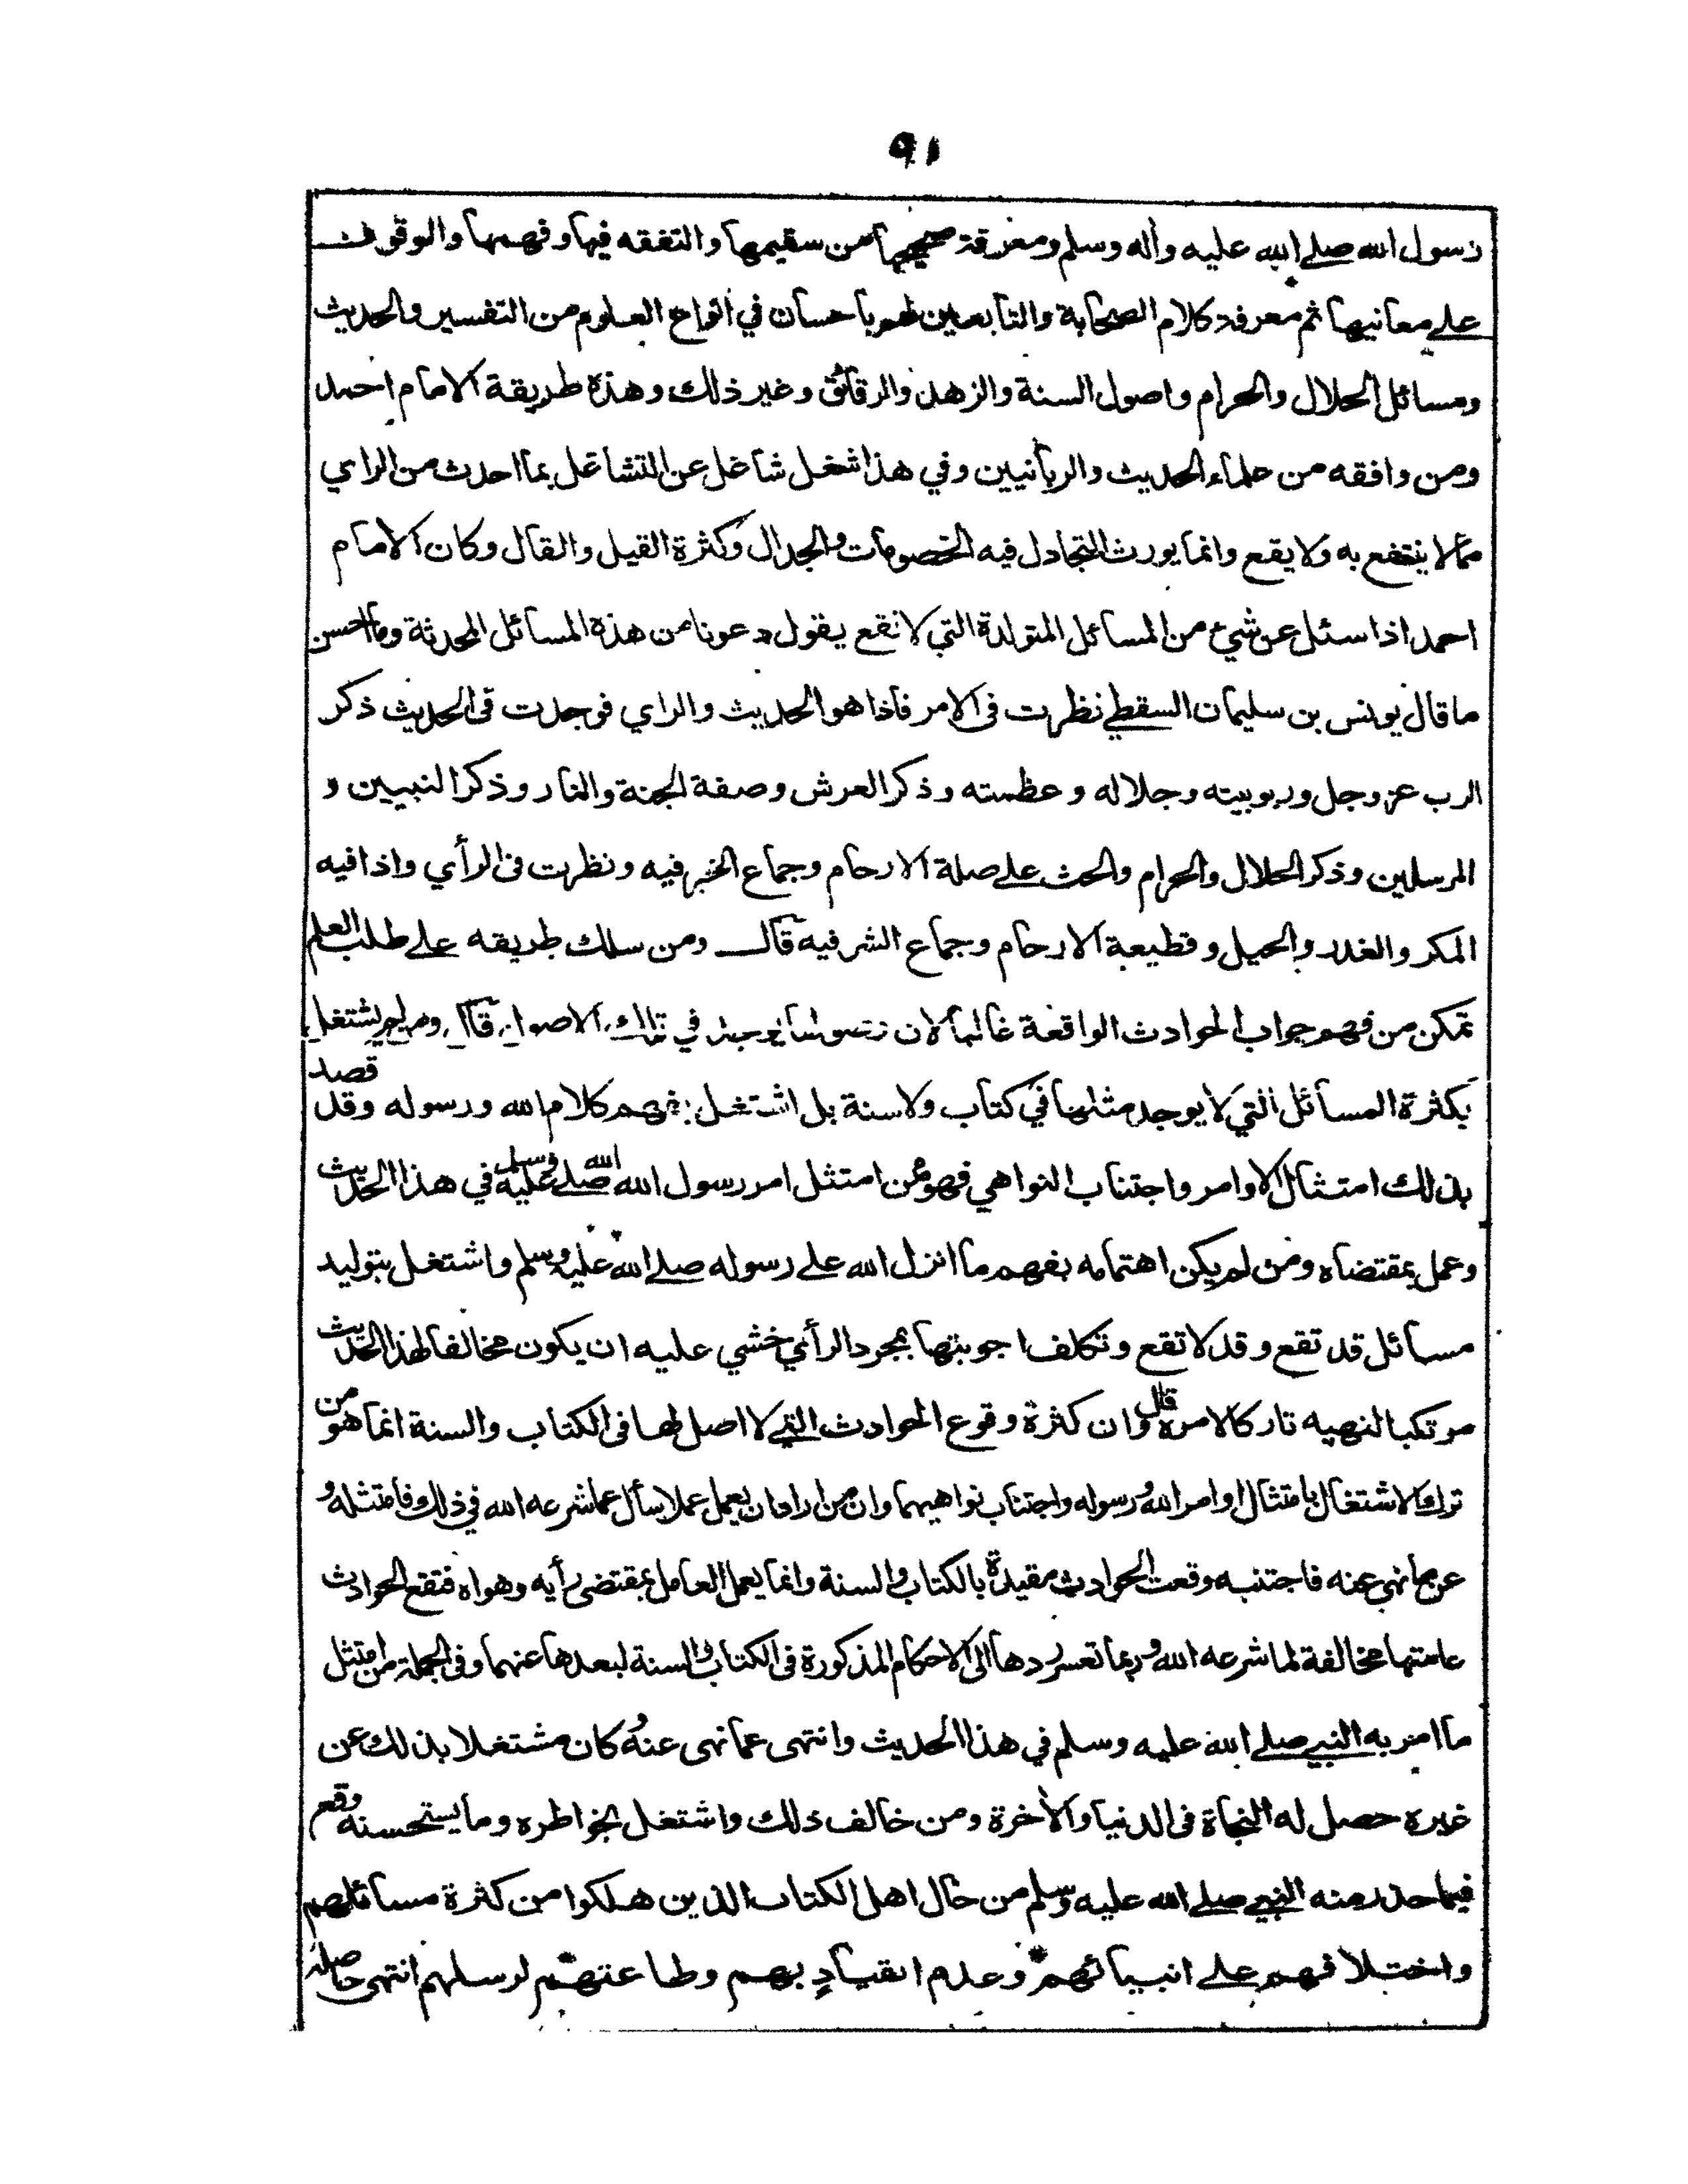 ٩١
رسول الله صلے الله عليه واله وسلم ومعرفة صحيحها من سقيمها والتفقه فيها وفهمها والوقوف
علے معانيها ثم معرفة كلام الصحابة والتابعين لهم باحسان في انواع العلوم من التفسير والحديث
ومسائل الحلال والحرام واصول السنة والزهد والرقائق وغير ذلك وهذه طريقة الامام احمد
ومن وافقه من علماء الحديث والربانيين وفي هذا شغل شاغل عن التشاغل بما احدث من الراي
مما لا ينتفع به ولا يقع وانما يورث التجادل فيه الخصومات والجدال وكثرة القيل والقال وكان الامام
احمد اذا سئل عن شيء من المسائل المتولدة التي لا تقع يقول دعونا من هذه المسائل المحدثة وما احسن
ما قال يونس بن سليمان السقطي نظرت فى الامر فاذا هو الحديث والراي فوجدت فى الحديث ذكر
الرب عز وجل وربوبيته وجلاله وعظمته وذكر العرش وصفة الجنة والنار وذكر النبيين و
المرسلين وذكر الحلال والحرام والحث علے صلة الارحام وجماع الخير فيه ونظرت فى الرأي واذا فيه
المكر والغدر والحيل وقطيعة الارحام وجماع الشر فيه قال ومن سلك طريقه علے طلب العلم
تمكن من فهم جواب الحوادث الواقعة غالبا لان يوجد في تلك الاصول قال ومن لم يشتغل
بكثرة المسائل التي لا يوجد مثلها في كتاب ولا سنة بل اشتغل بفهم كلام الله ورسوله وقد قصد
بذلك امتثال الاوامر واجتناب النواهي فهو ممن امتثل امر رسول الله صلے الله عليه وسلم في هذا الحديث
وعمل بمقتضاه ومن لم يكن اهتمامه بفهم ما انزل الله علے رسوله صلے الله عليه وسلم واشتغل بتوليد
مسائل قد تقع وقد لا تقع وتكلف اجوبتها بمجرد الرأي خشي عليه ان يكون مخالفا لهذا الحديث
مرتكبا لنهيه تاركا لامره قال وان كثرة وقوع الحوادث التي لا اصل لها فى الكتاب والسنة انما هو من
ترك الاشتغال بامتثال اوامر الله ورسوله واجتناب نواهيهما وان من اراد ان يعمل عملا سأل عما شرعه الله في ذلك فامتثله و
عن ما نهي عنه فاجتنبه وقعت الحوادث مقيدة بالكتاب والسنة وانما يعمل العامل بمقتضى رأيه وهواه فتقع الحوادث
عامتها مخالفة لما شرعه الله وربما تعسر ردها الى الاحكام المذكورة فى الكتاب والسنة لبعدها عنهما وفى الجملة من امتثل
ما امر به النبي صلے الله عليه وسلم في هذا الحديث وانتهى عما نهى عنه وكان مشتغلا بذلك عن
غيره حصل له النجاة فى الدنيا والاخرة ومن خالف ذلك واشتغل بخواطره وما يستحسنه وقع
فيما حذر منه النبي صلے الله عليه وسلم من حال اهل الكتاب الذين هلكوا من كثرة مسائلهم
واختلافهم علے انبيائهم وعدم انقيادهم وطاعتهم لرسلهم انتهى حاصله